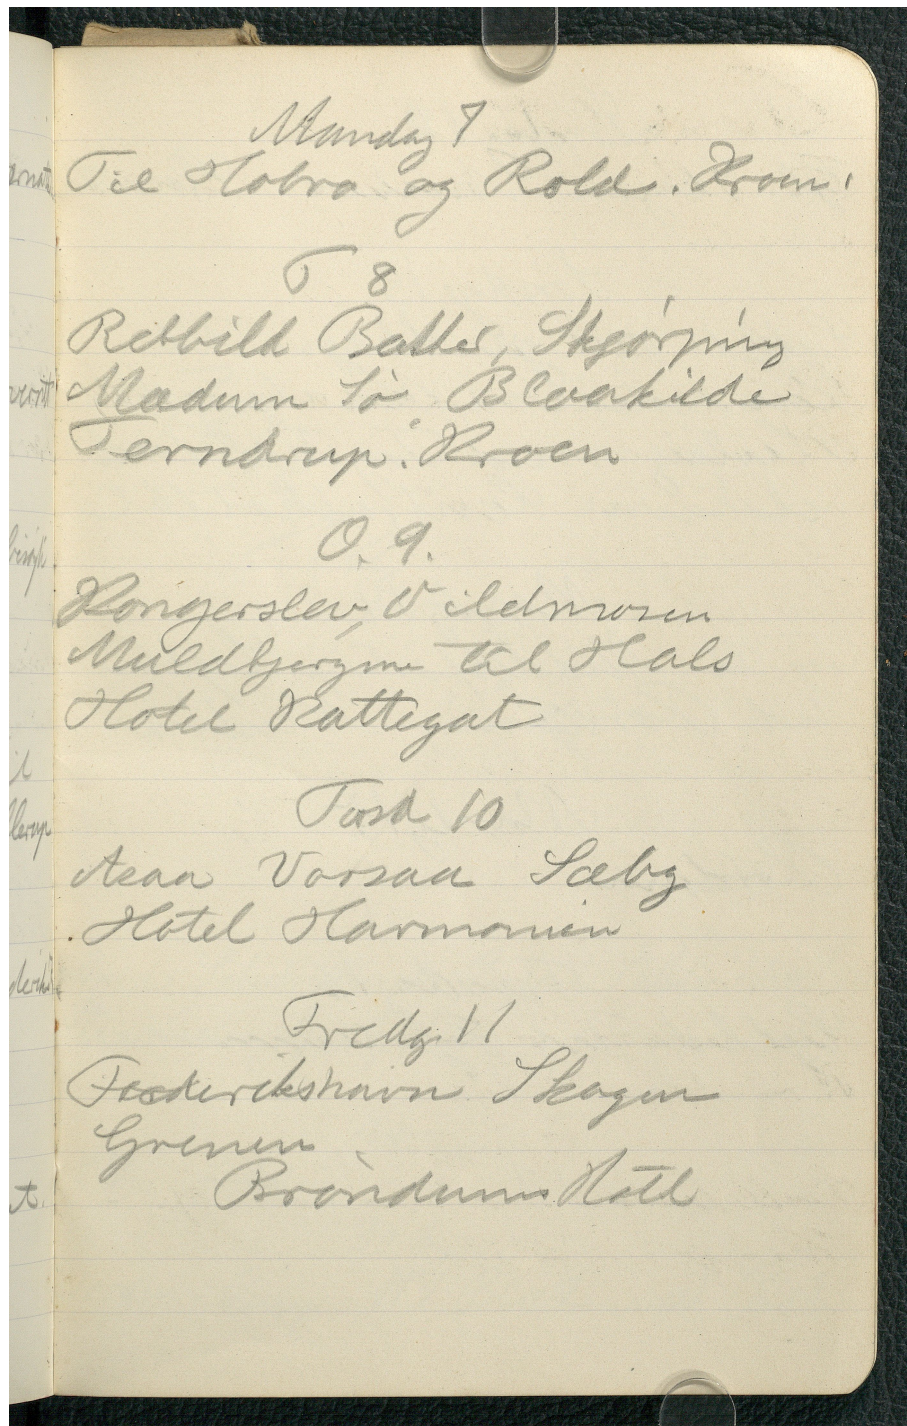 Mandag 7
Til Hobro og Rold. Kroen.
T 8
Rebbild Bakker, Skjørping
Mædum Sø Blaakilde
Terndrup. Kroen
O. 9.
Kongerslev, Vildmosen
Muldbjergene til Hals
Hotel Kattegat
Torsd 10
Asaa Vorsaa Sæby
Hotel Harmonien
Fredg 11
Frederikshavn Skagen
Grenen
Brøndums Hotel